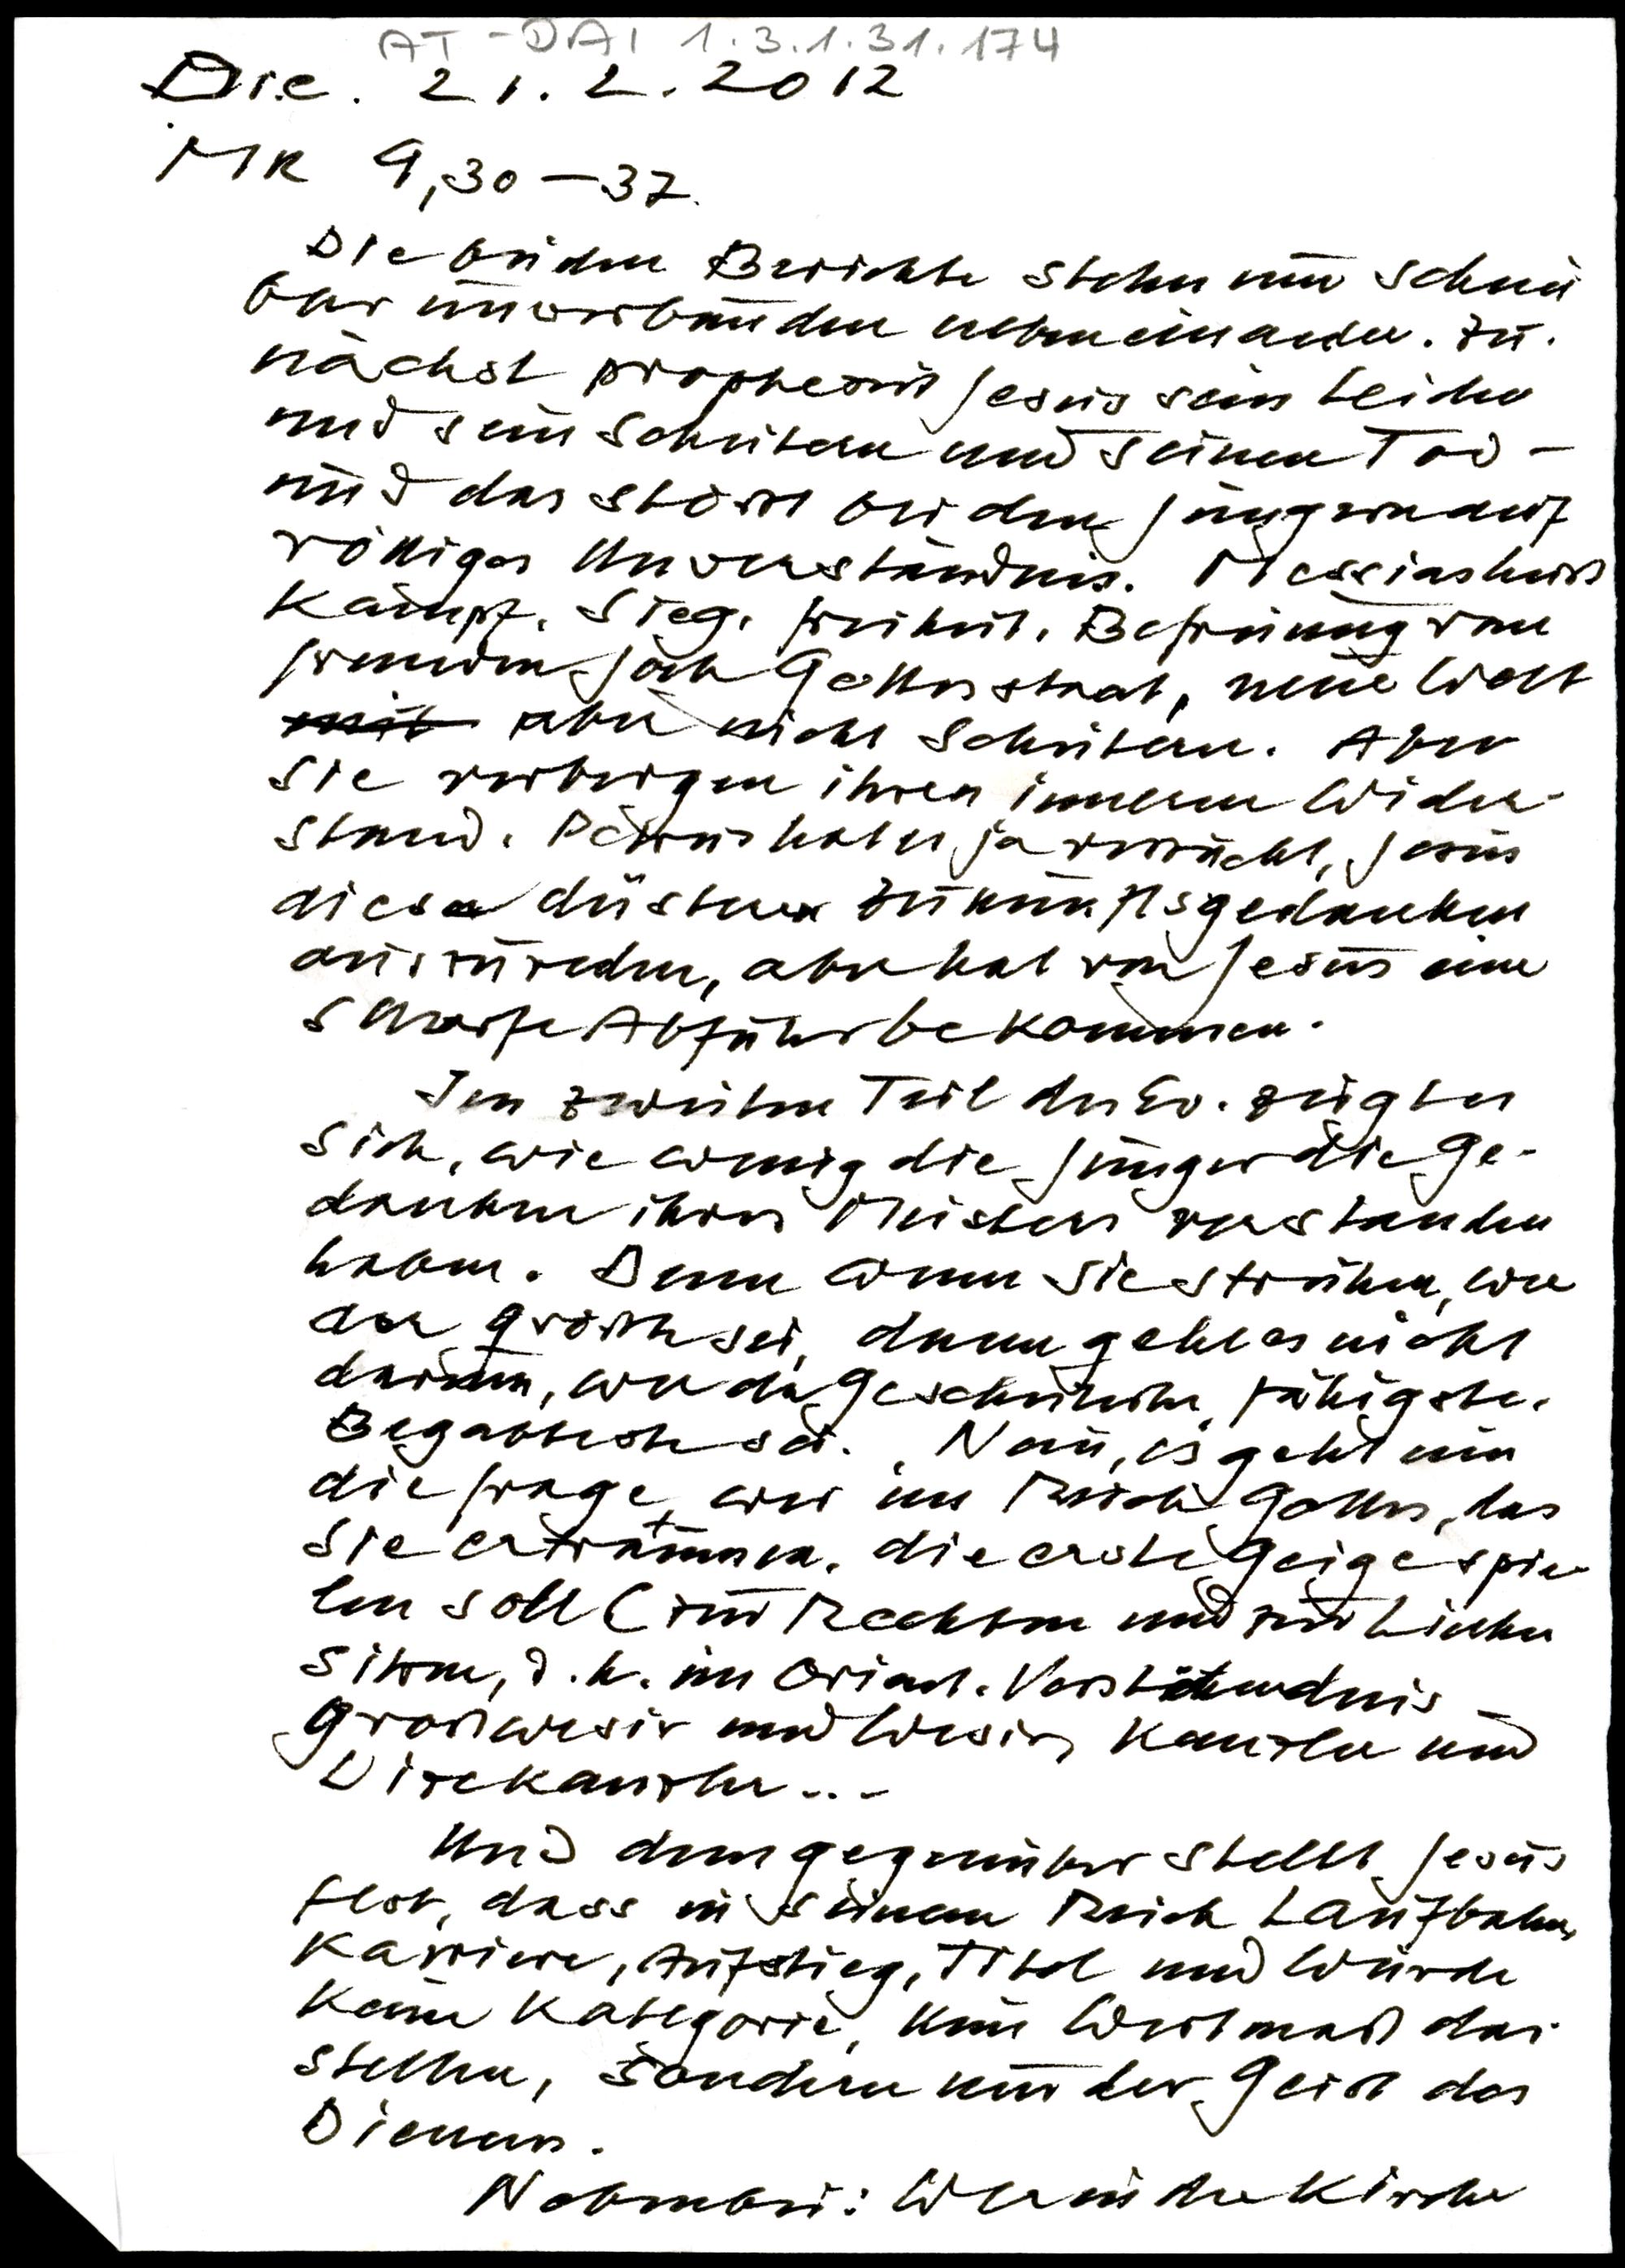 AT-DAI 1.3.1.31.174
Die. 21.2.2012
MK 9,30-37.
Die beiden Berichte stehen nur schein
bar unverbunden nebeneinander. Zu.
nächst prophezeit Jesus sein Leiden
und sein Scheitern und seinen Tod -
und das stößt bei den Jüngern auf
völliges Unverständnis. Messias heißt
Kampf, Sieg, Freiheit, Befreiung vom
fremden Joch Gottesstaat, neue Welt
mit aber nicht Scheitern. Aber
sie verbergen ihren inneren Wider-
stand. Petrus hat es ja versucht, Jesus
diese düstere Zukunftsgedanken
auszureden, aber hat von Jesus eine
scharfe Abfuhr bekommen.
Im zweiten Teil des Ev. zeigt es
sich, wie wenig die Jünger die Ge-
danken ihres Meisters verstanden
haben. Denn wenn sie streiten, wer
der größte sei, dann geht es nicht
darum, wer der Gescheiteste, Fähigste,
Begabteste sei. Nein, es geht um
die Frage, wer im Reich Gottes, das
sie erträumen, die erste Geige spie-
len soll (zur Rechten und zur Linken
sitzen, d.h. im orient. Verständnis
Großwesir und Wesir, Kanzler und
Vizekanzler...
Und demgegenüber stellt Jesus
fest, dass in seinem Reich Laufbahn,
Karriere, Aufstieg, Titel und Würde
keine Kategorie, kein Wertmaß dar
stellen, sondern nur der Geist des
Dienens.
Nebenbei: Wer in der Kirche